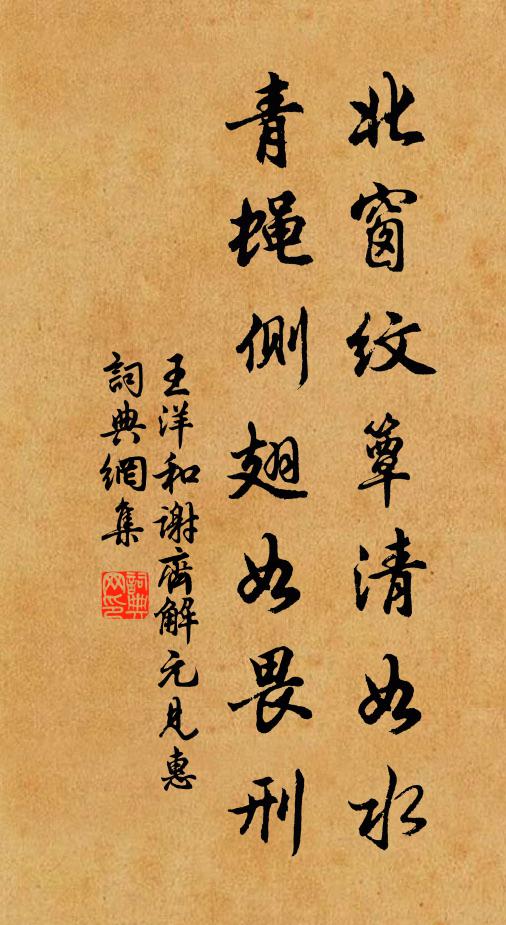 北窗纹簟清如水
青蝇侧翅如畏刑
王洋和謝齊解元見惠
詞典網集
詞典网印